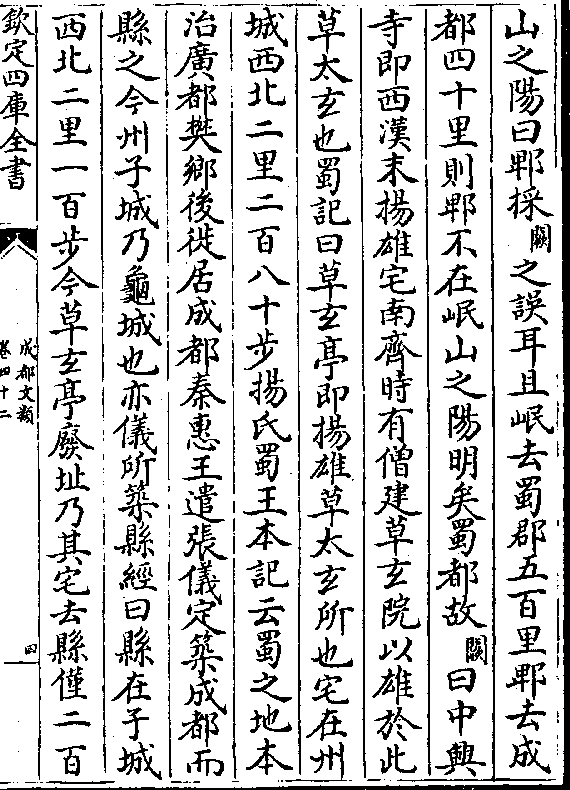 山之陽曰郫採闕之誤耳且岷去蜀郡五百里郫去成
都四十里則郫不在岷山之陽明矣蜀都故闕曰中興
寺即西漢末揚雄宅南齊時有僧建草𤣥院以雄於此
草太𤣥也蜀記曰草𤣥亭即揚雄草太𤣥所也宅在州
城西北二里二百八十步揚氏蜀王本記云蜀之地本
治廣都樊鄉後徙居成都秦惠王遣張儀定築成都而
縣之今州子城乃龜城也亦儀所築縣經曰縣在子城
西北二里一百步今草𤣥亭廢址乃其宅去縣僅二百
欽定四庫全書
成都文類
卷四十二
四